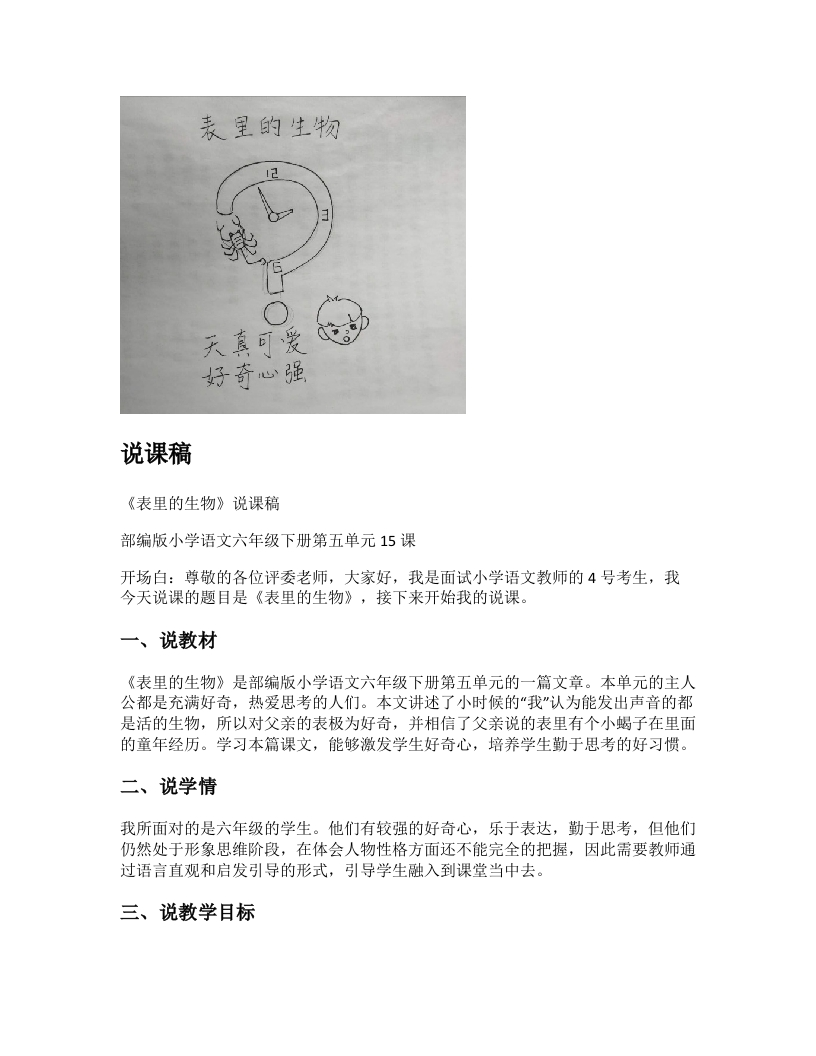 表里的生物
12
3
6
天真可爱
好奇心强
说课稿
《表里的生物》说课稿
部编版小学语文六年级下册第五单元 15 课
开场白：尊敬的各位评委老师，大家好，我是面试小学语文教师的 4 号考生，我
今天说课的题目是《表里的生物》，接下来开始我的说课。
一、说教材
《表里的生物》是部编版小学语文六年级下册第五单元的一篇文章。本单元的主人
公都是充满好奇，热爱思考的人们。本文讲述了小时候的“我”认为能发出声音的都
是活的生物，所以对父亲的表极为好奇，并相信了父亲说的表里有个小蝎子在里面
的童年经历。学习本篇课文，能够激发学生好奇心，培养学生勤于思考的好习惯。
二、说学情
我所面对的是六年级的学生。他们有较强的好奇心，乐于表达，勤于思考，但他们
仍然处于形象思维阶段，在体会人物性格方面还不能完全的把握，因此需要教师通
过语言直观和启发引导的形式，引导学生融入到课堂当中去。
三、说教学目标